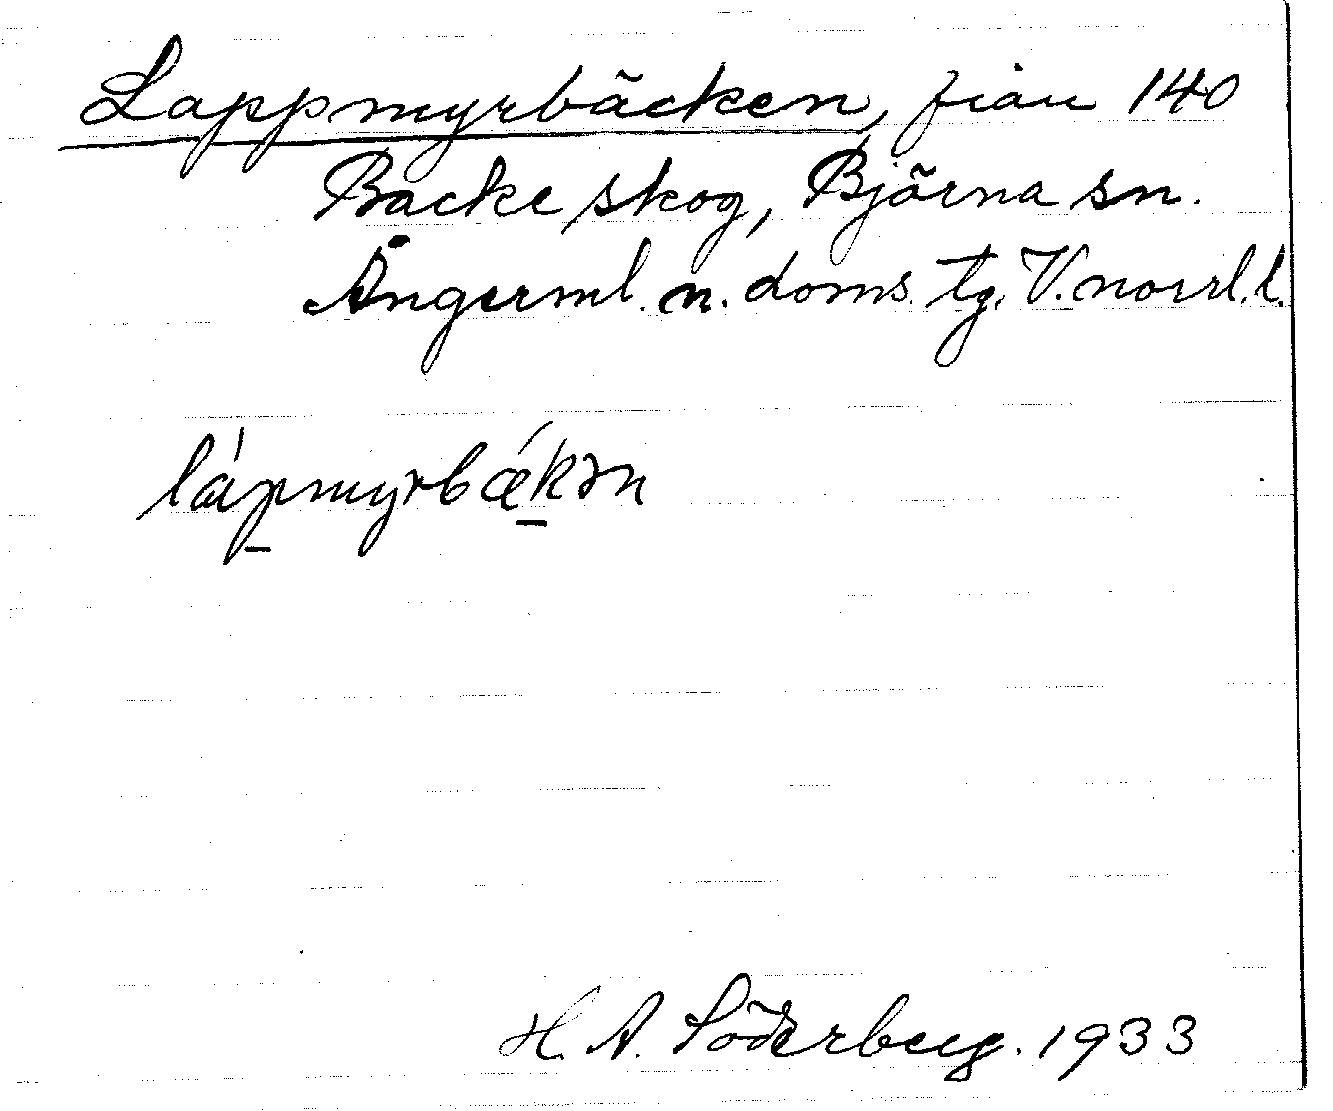 Lappmyrbäcken, från 140
Backe skog, Björna sn.
Ångerml. n. doms. tg. V. norrl. l.
lápmyrbǽkən
H. A. Söderberg. 1933